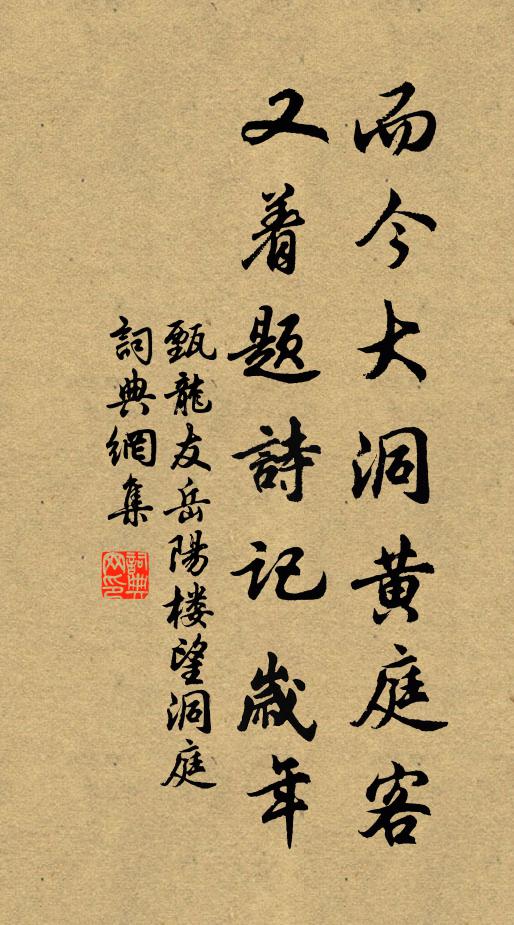 而今大洞黄庭客
又着题詩记歲年
甄龍友岳陽楼望洞庭
詞典網集
詞典网印